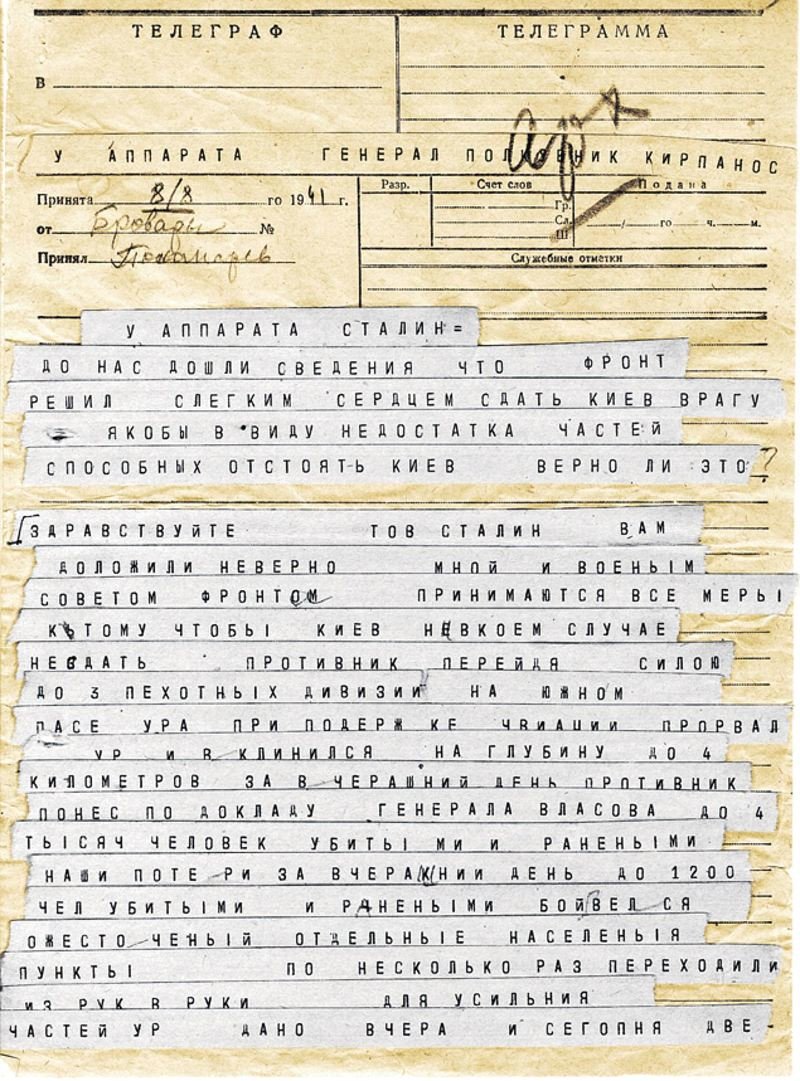 ТЕЛЕГРАФ
ТЕЛЕГРАММА
В
Арх
У АППАРАТА ГЕНЕРАЛ ПОЛКОВНИК КИРПАНОС
Принята 8/8 го 1941 г.
от Бровары №
Принял
Разр.
Счет слов
Подана
Гр.
Сл.
Ш.
/ го ч. м.
Служебные отметки
У АППАРАТА СТАЛИН=
ДО НАС ДОШЛИ СВЕДЕНИЯ ЧТО ФРОНТ
РЕШИЛ СЛЕГКИМ СЕРДЦЕМ СДАТЬ КИЕВ ВРАГУ
ЯКОБЫ В ВИДУ НЕДОСТАТКА ЧАСТЕЙ
СПОСОБНЫХ ОТСТОЯТЬ КИЕВ ВЕРНО ЛИ ЭТО?
ЗДРАВСТВУЙТЕ ТОВ СТАЛИН ВАМ
ДОЛОЖИЛИ НЕВЕРНО МНОЙ И ВОЕНЫМ
СОВЕТОМ ФРОНТОМ ПРИНИМАЮТСЯ ВСЕ МЕРЫ
КЪТОМУ ЧТОБЫ КИЕВ НЕВКОЕМ СЛУЧАЕ
НЕСДАТЬ ПРОТИВНИК ПЕРЕЙДЯ СИЛОЮ
ДО 3 ПЕХОТНЫХ ДИВИЗИЙ НА ЮЖНОМ
ПАСЕ УРА ПРИ ПОДЕРЖ КЕ ЧВИАЦИИ ПРОРВАЛ
УР И В КЛИНИЛСЯ НА ГЛУБИНУ ДО 4
КИЛОМЕТРОВ ЗА В ЧЕРАШНИЙ ДЕНЬ ПРОТИВНИК
ПОНЕС ПО ДОКЛАДУ ГЕНЕРАЛА ВЛАСОВА ДО 4
ТЫСЯЧ ЧЕЛОВЕК УБИТЫ МИ И РАНЕНЫМИ
НАШИ ПОТЕ РИ ЗА ВЧЕРАШНИЙ ДЕНЬ ДО 1200
ЧЕЛ УБИТЫМИ И РАНЕНЫМИ БОЙВЕЛ СЯ
ОЖЕСТО ЧЕНЫЙ ОТДЕЛЬНЫЕ НАСЕЛЕНЫЯ
ПУНКТЫ ПО НЕСКОЛЬКО РАЗ ПЕРЕХОДИЛИ
ИЗ РУК В РУКИ ДЛЯ УСИЛЬНИЯ
ЧАСТЕЙ УР ДАНО ВЧЕРА И СЕГОПНЯ ДВЕ-